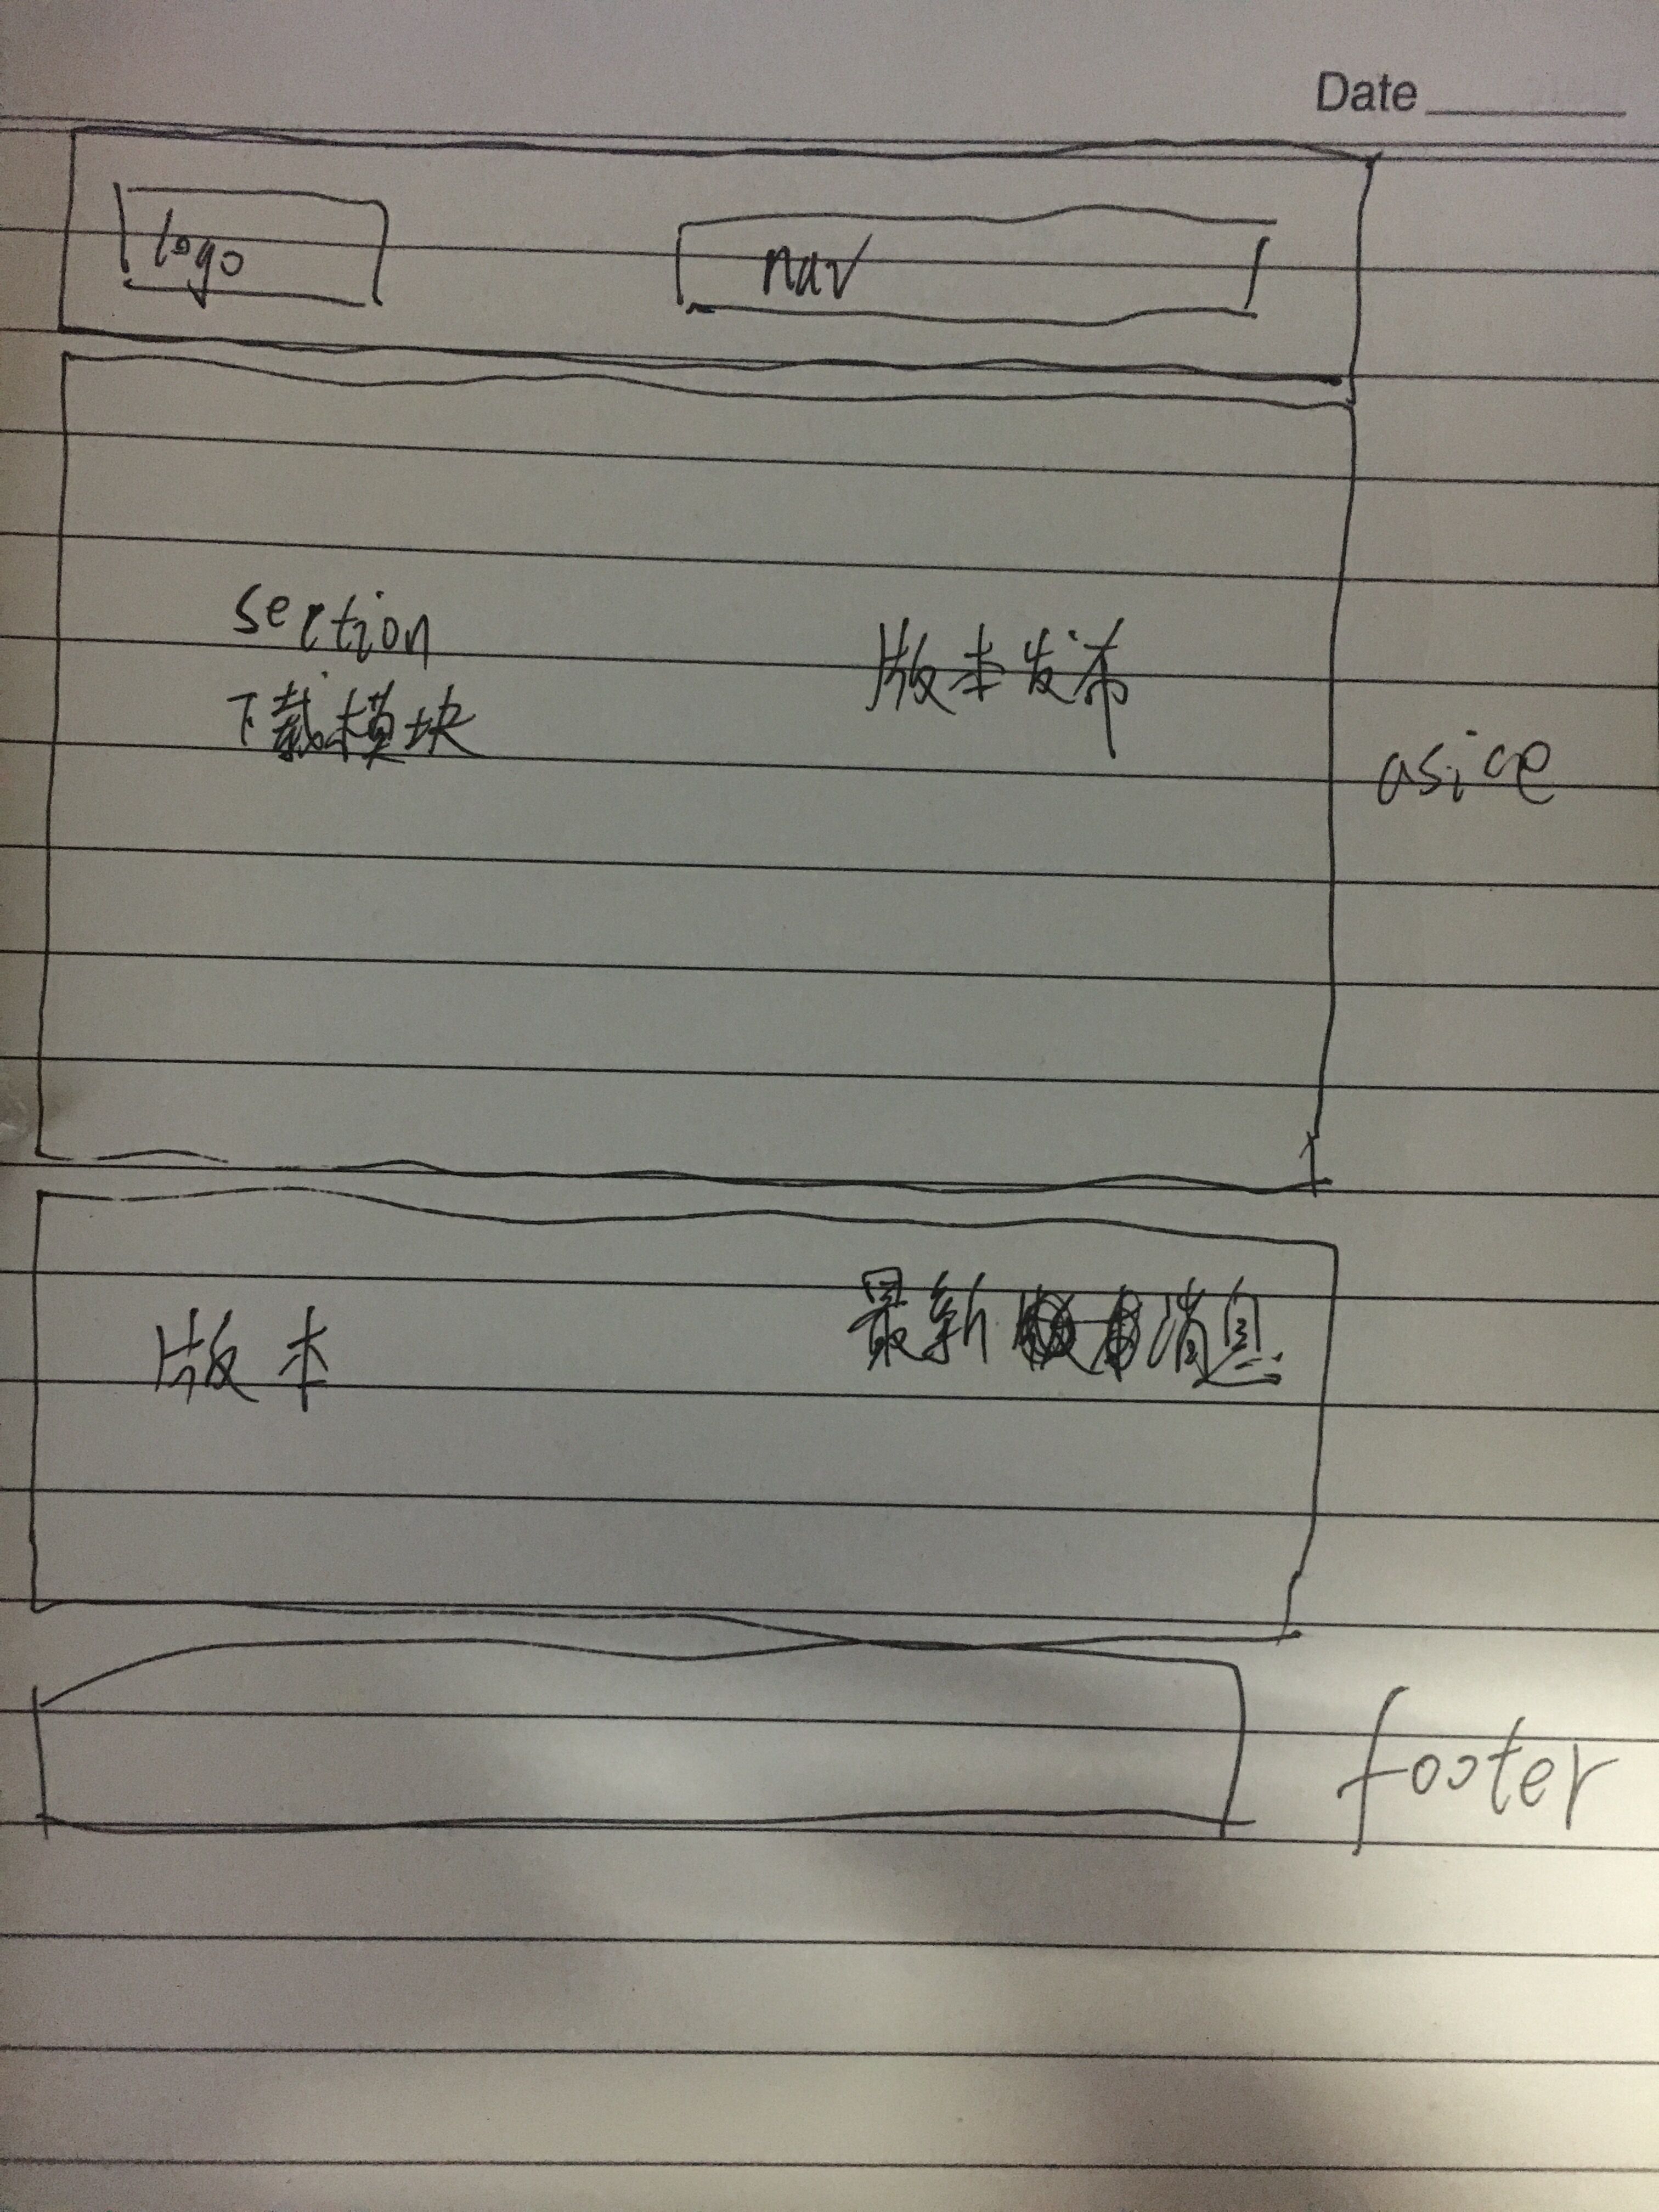 Date
logo
nav
section
下载模块
版本发布
asice
版本
最新消息
footer